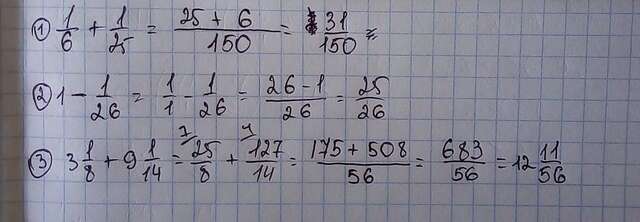 ① 1/6 + 1/25 = (25 + 6)/150 = 31/150
② 1 - 1/26 = 1/1 - 1/26 = (26 - 1)/26 = 25/26
③ 3 1/8 + 9 1/14 = 25/8 (7) + 127/14 (4) = (175 + 508)/56 = 683/56 = 12 11/56